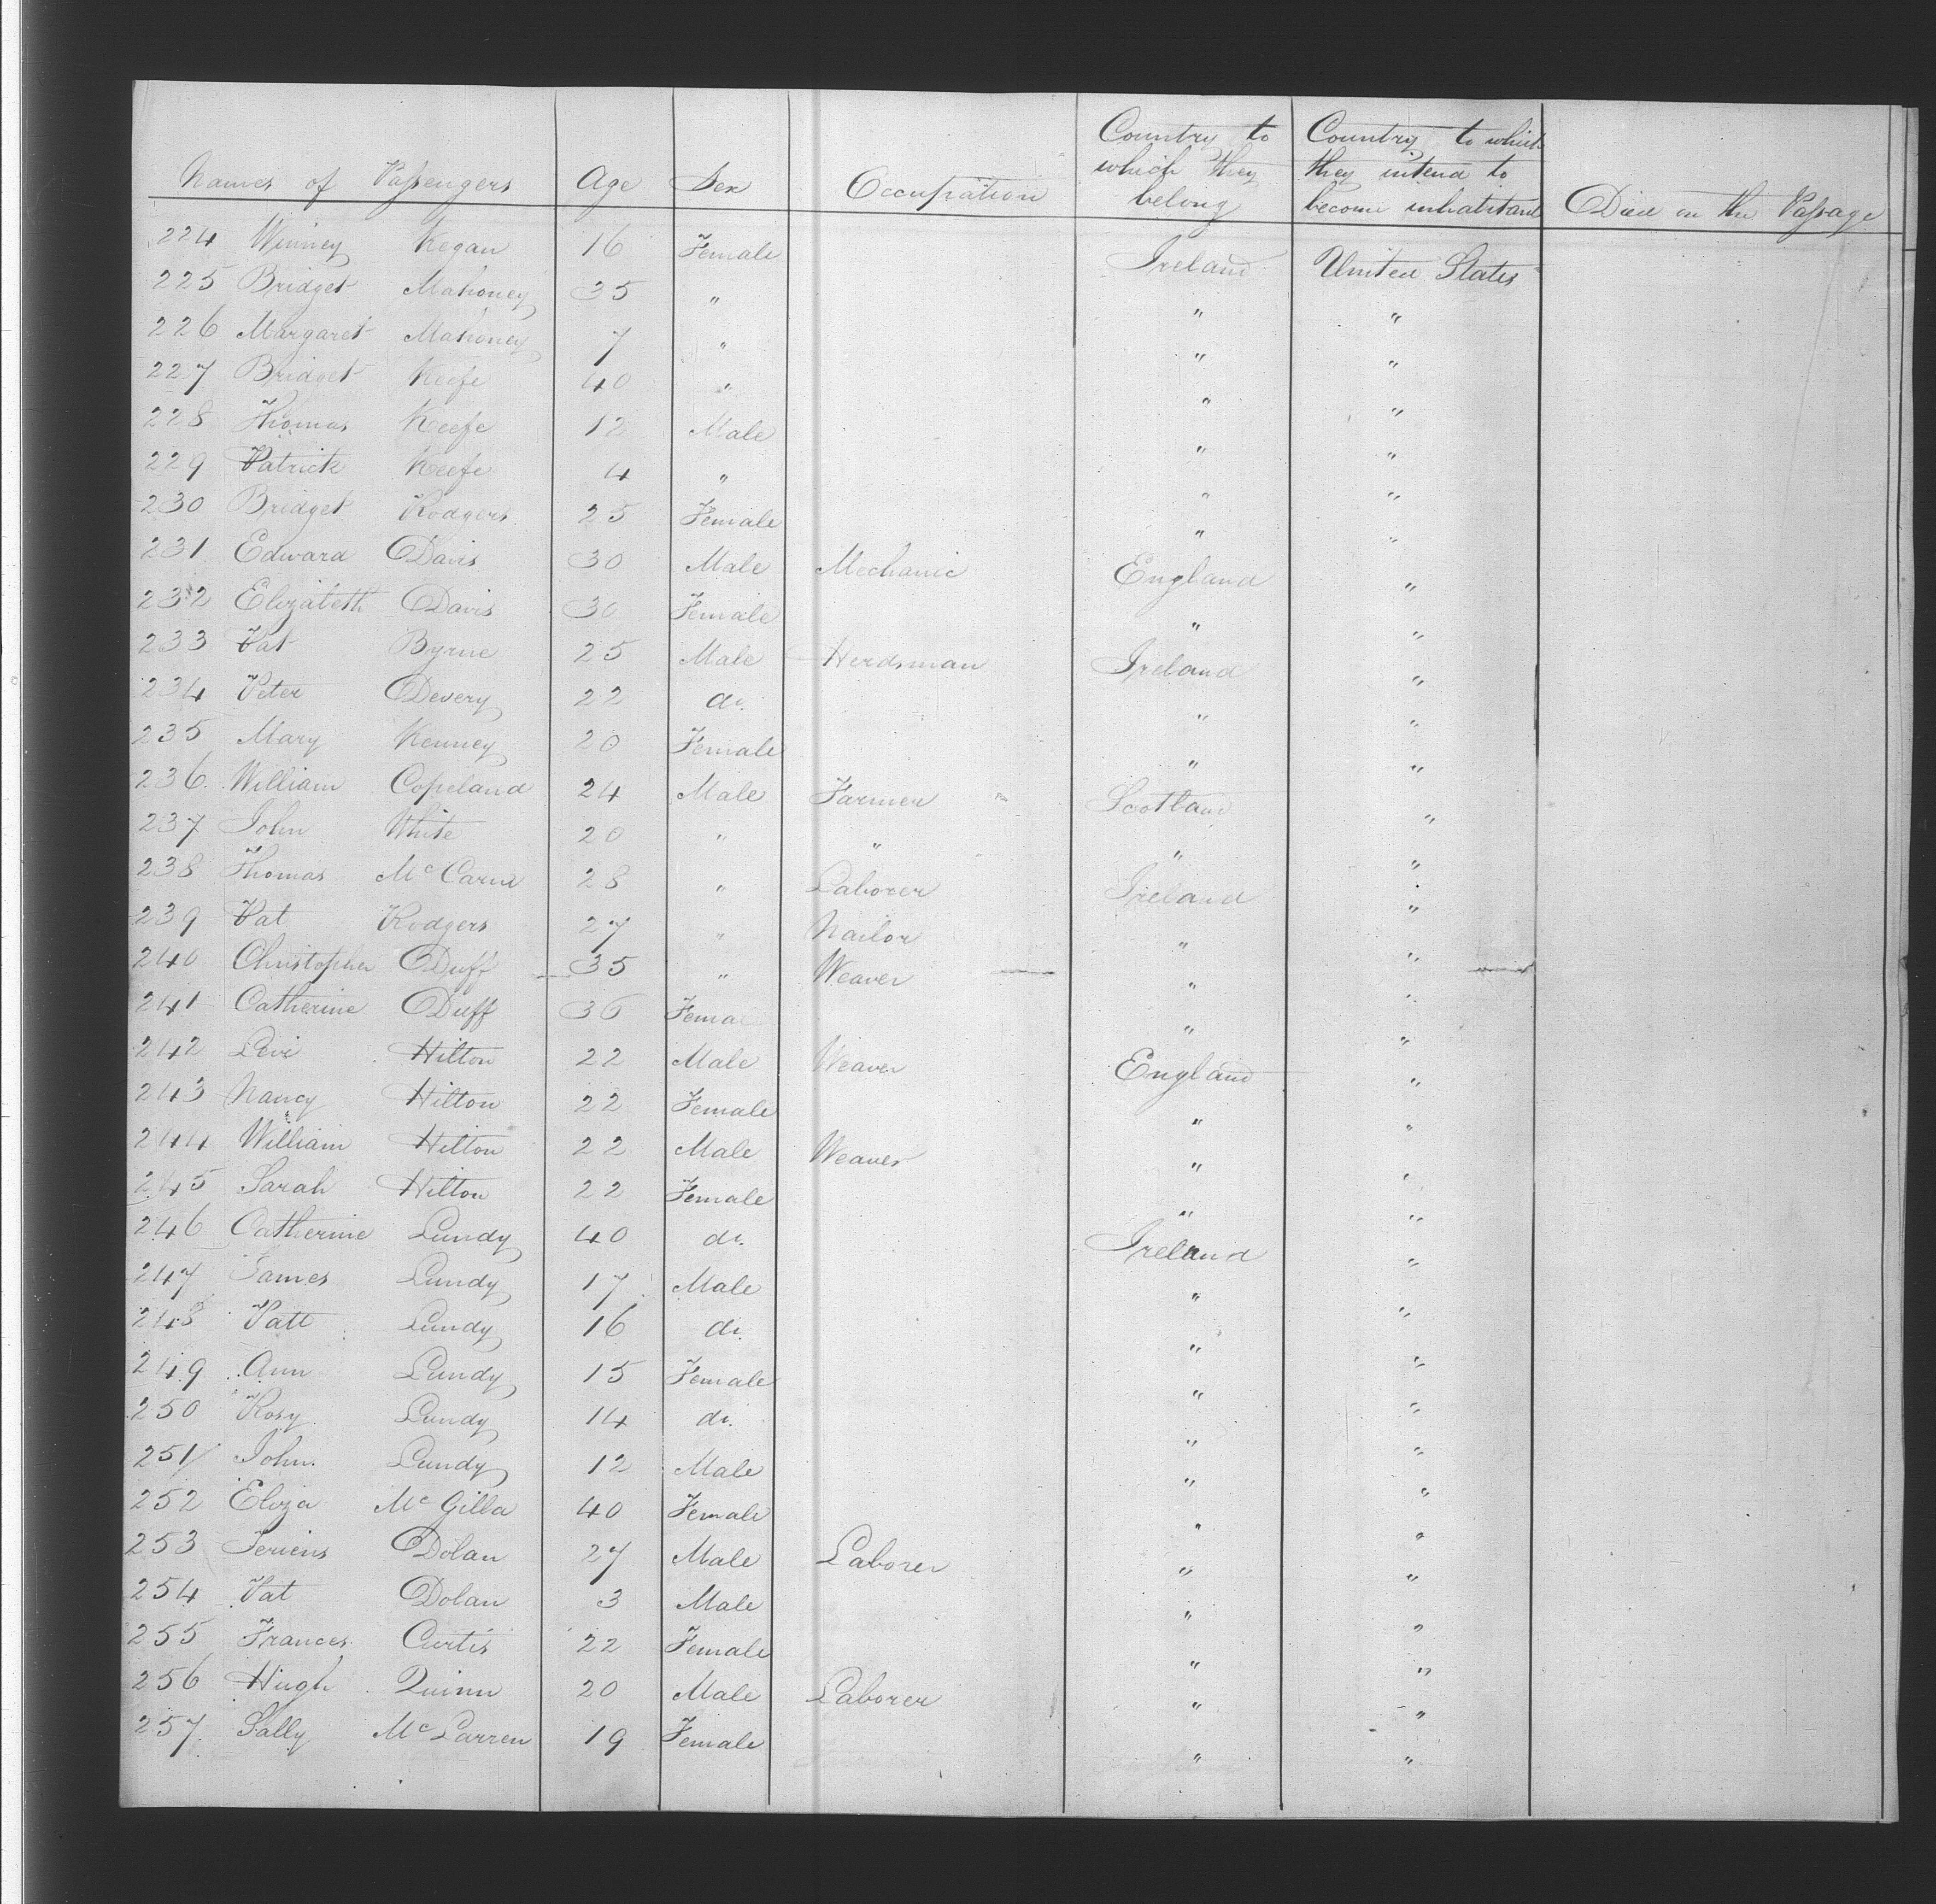 Names of Passengers Age Sex Occupation Country to which they belong Country to which they intend to become inhabitant Died on the Passage
224 Winney Kegan 16 Female Ireland United States
225 Bridget Mahoney 35 " " "
226 Margaret Mahoney 7 " " "
227 Bridget Keefe 40 " " "
228 Thomas Keefe 12 Male " "
229 Patrick Keefe 4 " " "
230 Bridget Rodgers 25 Female " "
231 Edward Davis 30 Male Mechanic England "
232 Elizabeth Davis 30 Female " "
233 Pat Byrne 25 Male Herdsman Ireland "
234 Peter Devery 22 do. " "
235 Mary Kenney 20 Female " "
236 William Copeland 24 Male Farmer Scotland "
237 John White 20 " " " "
238 Thomas McCarne 28 " Laborer Ireland "
239 Pat Rodgers 27 " Nailor " "
240 Christopher Duff 35 " Weaver " "
241 Catherine Duff 36 Female " "
242 Levi Hilton 22 Male Weaver England "
243 Nancy Hilton 22 Female " "
244 William Hilton 22 Male Weaver " "
245 Sarah Hilton 22 Female " "
246 Catherine Lundy 40 do. Ireland "
247 James Lundy 17 Male " "
248 Patt Lundy 16 do. " "
249 Ann Lundy 15 Female " "
250 Rosy Lundy 14 do. " "
251 John Lundy 12 Male " "
252 Eliza McGilla 40 Female " "
253 Dolan 27 Male Laborer " "
254 Pat Dolan 3 Male " "
255 Frances Curtis 22 Female " "
256 Hugh Quinn 20 Male Laborer " "
257 Sally McLarren 19 Female " "